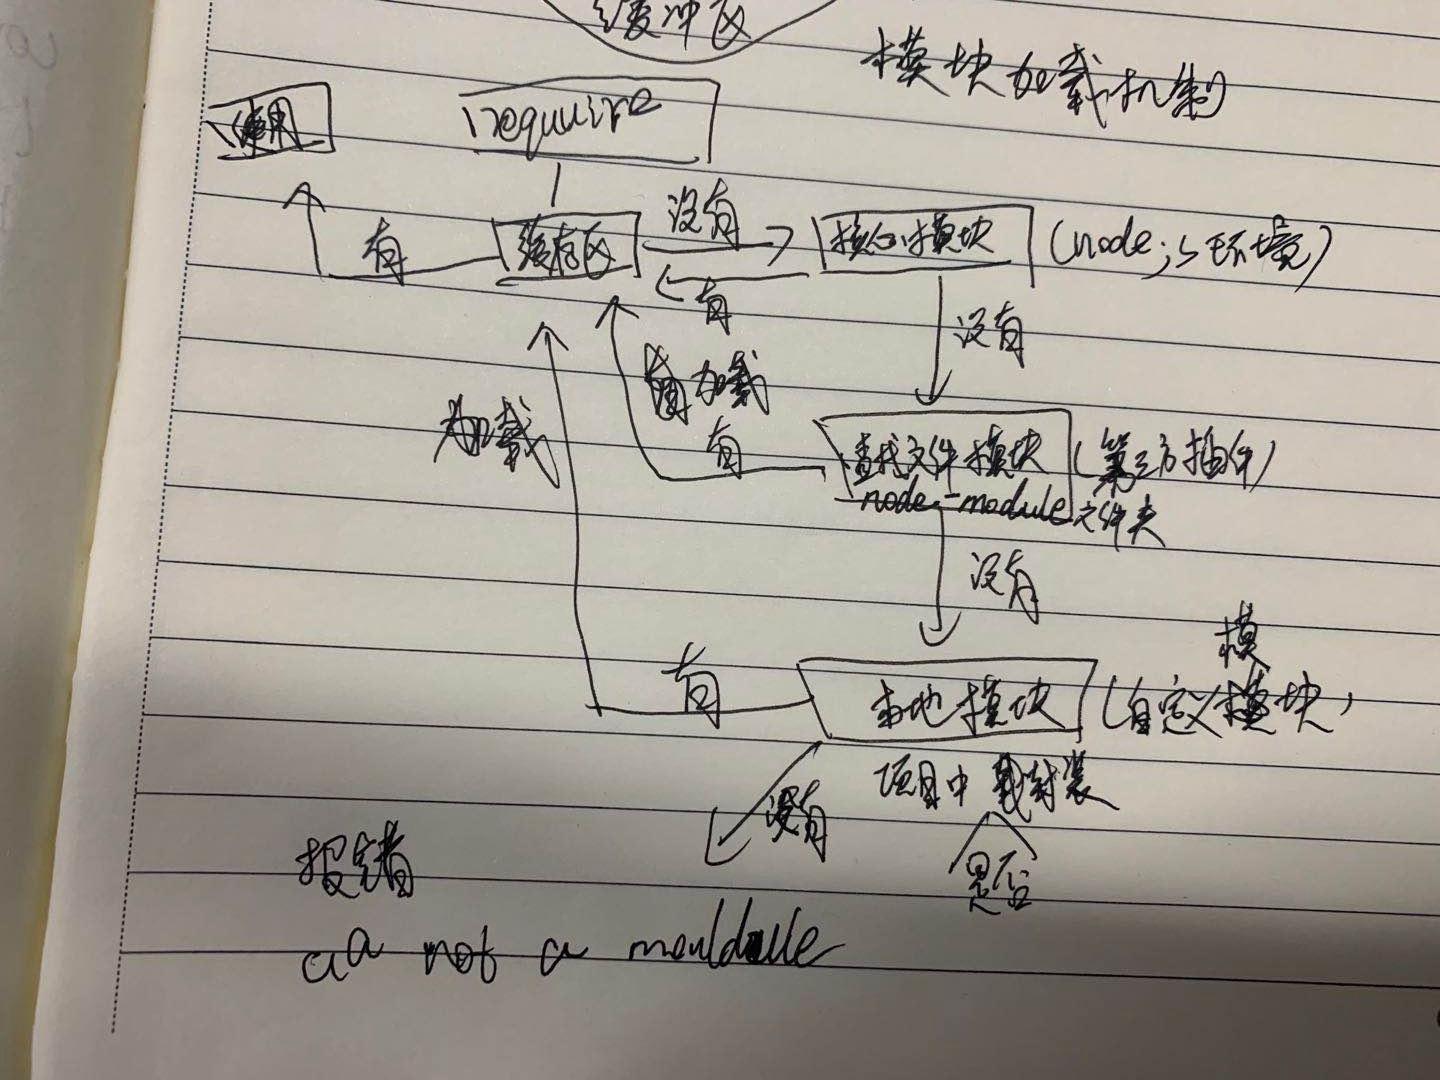 缓冲区
模块加载机制
使用
require
没有
有
缓存区
核心模块
(node.js环境)
有
没有
加载
加载
有
查找文件模块
(第三方插件)
node-module文件夹
没有
模
有
本地模块
(自定义模块)
项目中 封装
没有
是否
报错
aa not a mouldule